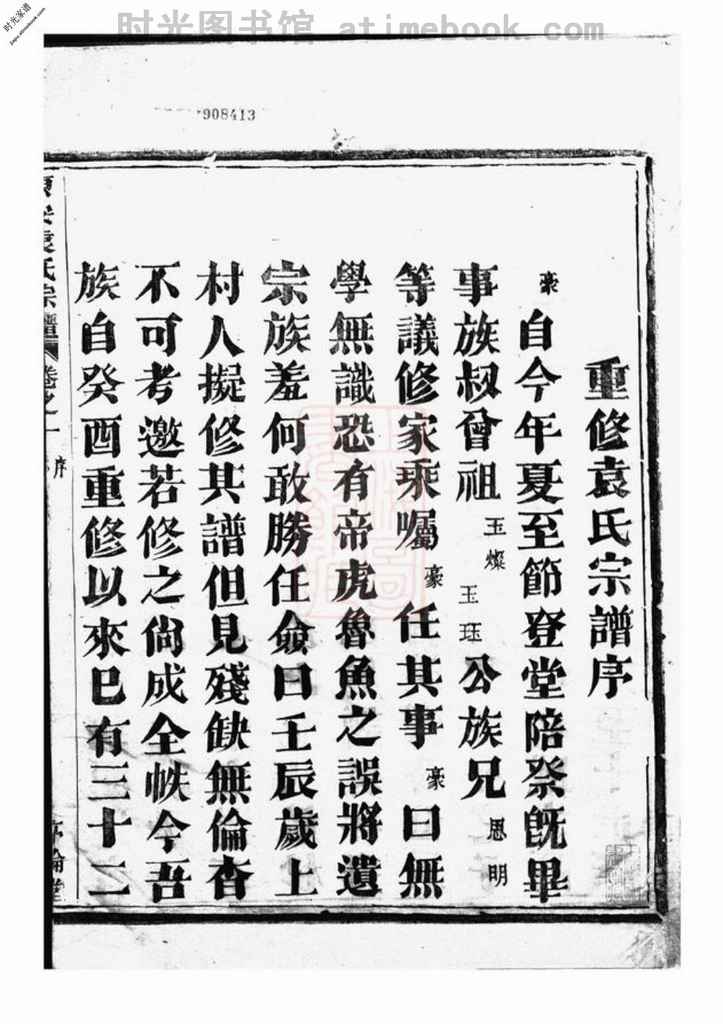 时光图书馆 atimebook.com
时光家谱
jiapu.atimebook.com
908413
重修袁氏宗譜序
豪自今年夏至節登堂陪祭既畢
事族叔曾祖玉燦玉珏公族兄思明
等議修家乘囑豪任其事豪曰無
學無識恐有帝虎魯魚之誤將遺
宗族羞何敢勝任僉曰壬辰歲上
村人擬修其譜但見殘缺無倫杳
不可考邀若修之尙成全帙今吾
族自癸酉重修以來已有三十二
袁氏宗譜 卷之一 序